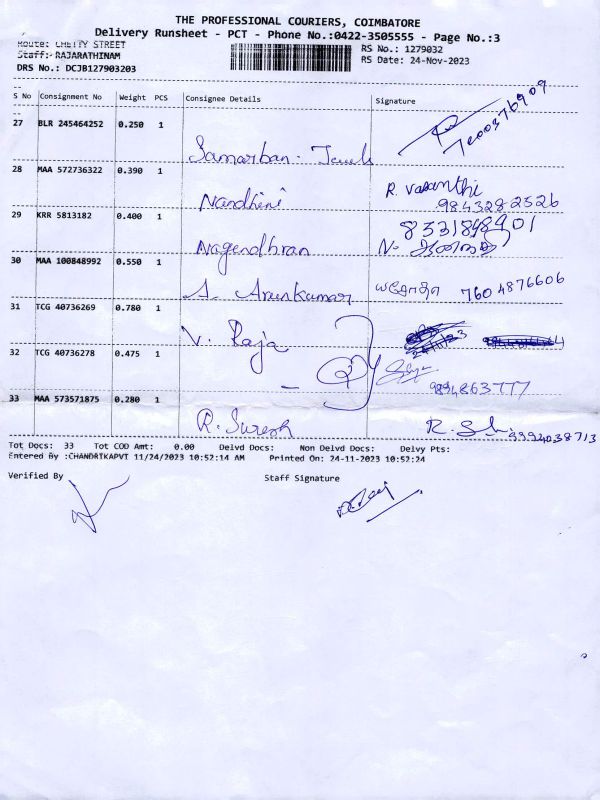 THE PROFESSIONAL COURIERS, COIMBATORE
Delivery Runsheet - PCT - Phone No.:0422-3505555 - Page No.:3
Route: CHETTY STREET
RS No.: 1279032
Staff: RAJARATHINAM
RS Date: 24-Nov-2023
DRS No.: DCJB127903203
S No Consignment No Weight PCS Consignee Details Signature
27 BLR 245464252 0.250 1
28 MAA 572736322 0.390 1 Nandhini R. Vasanthi
9843282526
29 KRR 5813182 0.400 1 Nagendhran
30 MAA 100848992 0.550 1 A. Arunkumar யசோதா 7604876606
31 TCG 40736269 0.780 1 V. Raja
32 TCG 40736278 0.475 1 9894863777
33 MAA 573571875 0.280 1 R. Suresh 9994038713
Tot Docs: 33 Tot COD Amt: 0.00 Delvd Docs: Non Delvd Docs: Delvy Pts:
Entered By :CHANDRIKAPVT 11/24/2023 10:52:14 AM Printed On: 24-11-2023 10:52:24
Verified By Staff Signature